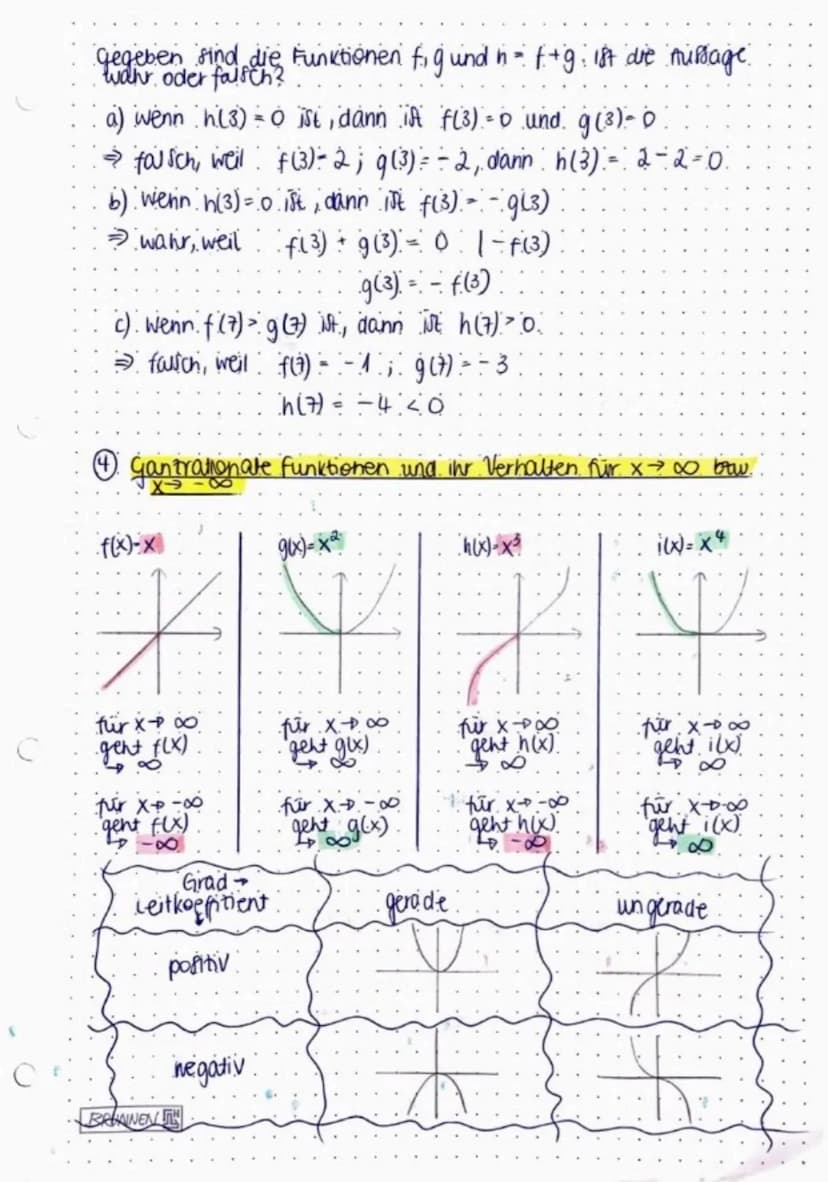 Gegeben sind die Funktionen f, g und h = f+g. Ist die Aussage
wahr oder falsch?
a) Wenn h(3) = 0 ist, dann ist f(3) = 0 und g(3) = 0
⇒ falsch, weil f(3) = 2 ; g(3) = -2, dann h(3) = 2 - 2 = 0.
b) Wenn h(3) = 0 ist, dann ist f(3) = - g(3)
⇒ wahr, weil f(3) + g(3) = 0 | - f(3)
g(3) = - f(3)
c) Wenn f(7) > g(7) ist, dann ist h(7) > 0.
⇒ falsch, weil f(7) = -1 ; g(7) = -3
h(7) = -4 < 0
④ Ganzrationale Funktionen und ihr Verhalten für x → ∞ bzw.
x → -∞
f(x)=x g(x)=x² h(x)=x³ i(x)=x⁴
für x → ∞ für x → ∞ für x → ∞ für x → ∞
geht f(x) geht g(x) geht h(x) geht i(x)
→ ∞ → ∞ → ∞ → ∞
für x → -∞ für x → -∞ für x → -∞ für x → -∞
geht f(x) geht g(x) geht h(x) geht i(x)
↳ -∞ ↳ ∞ ↳ -∞ ↳ ∞
Grad →
Leitkoeffizient gerade ungerade
positiv
negativ
BRUNNEN